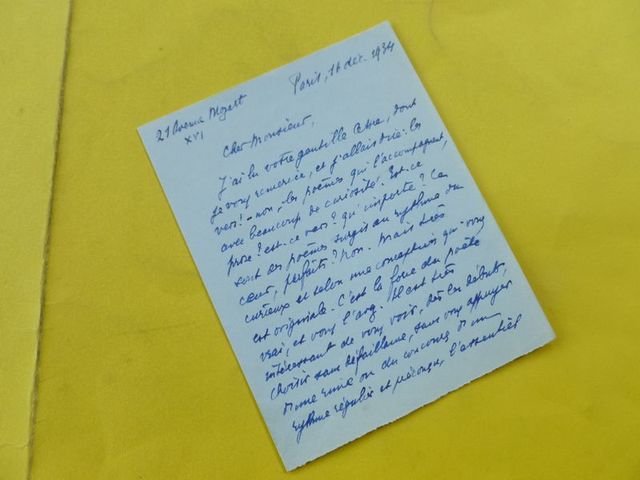 21 Avenue Mozart
XVI
Paris, 16 déc. 1934
Cher Monsieur,
J'ai lu votre gentille lettre, dont
je vous remercie, et j'allais dire : les
vers : - non, les poèmes qui l'accompagnent,
avec beaucoup de curiosité. Est-ce
prose ? est-ce vers ? qu'importe ? Ce
sont des poèmes surgis au rythme du
cœur, parfaits ? non. Mais très
curieux et selon une conception qui vous
est originale. C'est la force du poète
vrai, et vous l'avez. Il est très
intéressant de vous voir, dès les débuts,
choisir sans défaillance, sans vous appuyer
d'une rime ou du concours d'un
rythme régulier et reconnu, l'essentiel